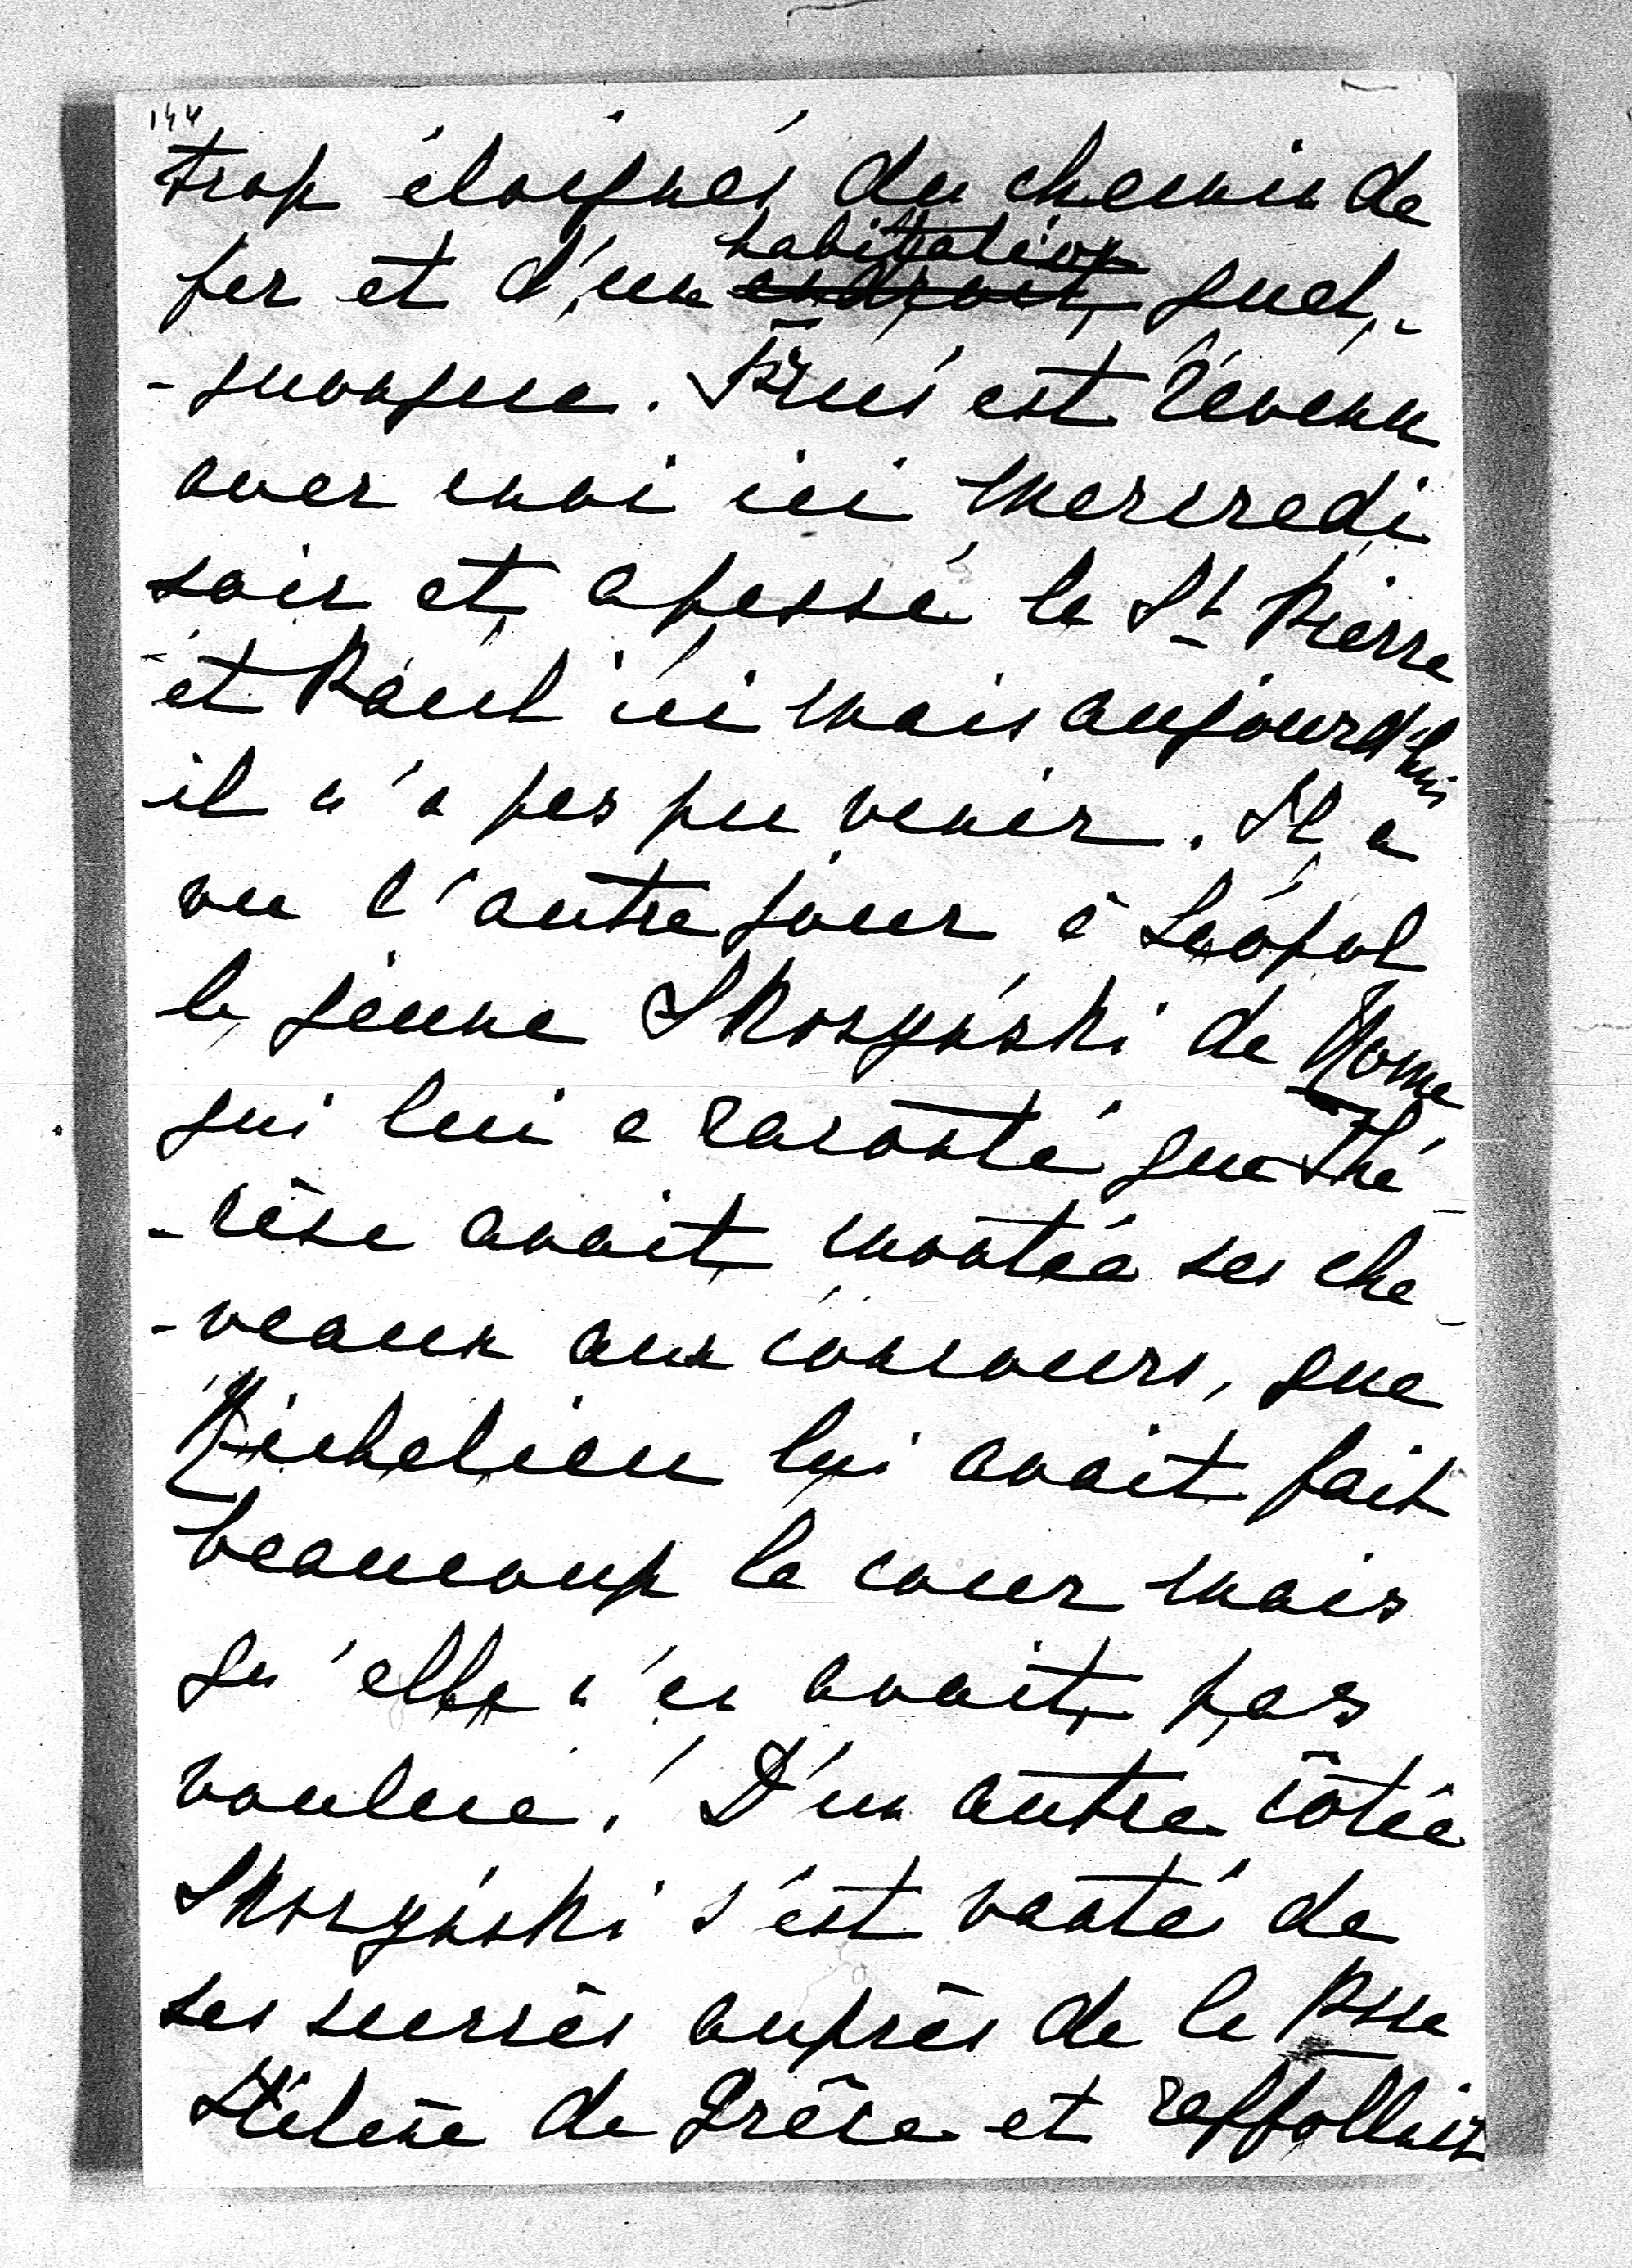 144
trop éloignés du chemin de
habitation
fer et d'une endroit quel-
-quonque. Frié est révenu
avec moi ici mercredi
soir et a passé le St Pierre
et Paul ici mais aujourd'hui
il n'a pas pu venir. Il a
vu l'autre jour à Léopol
le jeune Skrzyński de Rome
qui lui a raconté que Thé-
-rèse avait montée ses che-
-veaux aux concours, que
Richelieu lui avait fait
beaucoup la cour mais
qu'elle n'en avait pas
voulue! D'un autre côtée
Skrzyński s'est vanté de
ses succès auprès de la Psse
Hélène de Grèce et raffollait